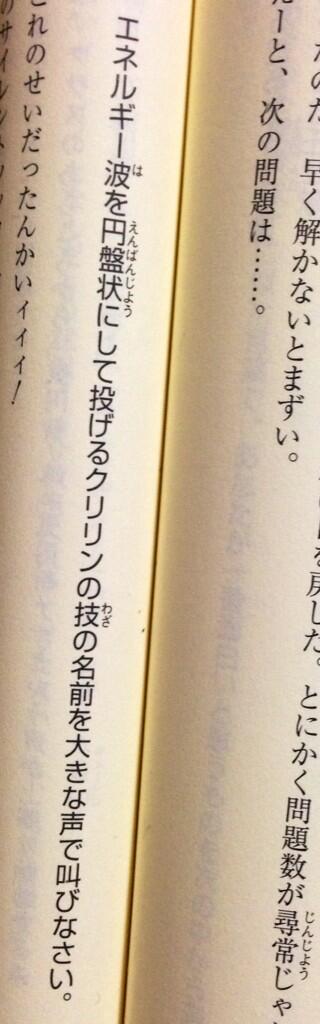 を戻した。とにかく問題数が尋常じゃ
早く解かないとまずい。
ーと、次の問題は……。
エネルギー波を円盤状にして投げるクリリンの技の名前を大きな声で叫びなさい。
これのせいだったんかいィィィ！